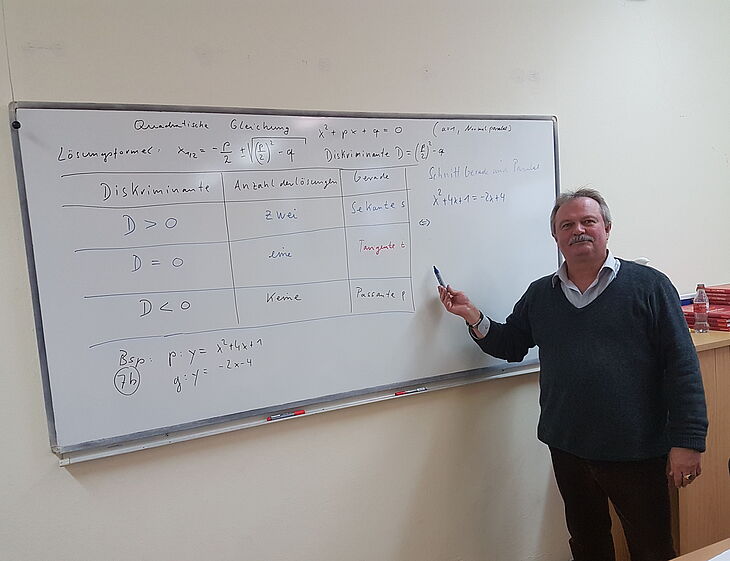 Quadratische Gleichung x² + px + q = 0 (a=1, Normalparabel)
Lösungsformel: x₁/₂ = -p/2 ± √((p/2)² - q) Diskriminante D = (p/2)² - q
Diskriminante Anzahl der Lösungen Gerade
D > 0 zwei Sekante s
D = 0 eine Tangente t
D < 0 Keine Passante p
Bsp: p: y = x²+4x+1
7b g: y = -2x-4
Schnitt Gerade und Parabel
x²+4x+1 = -2x+4
⇔